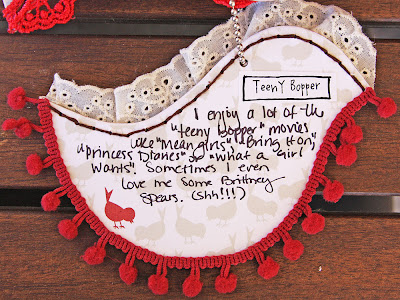 TeenY Bopper
I enjoy a lot of the
"teeny bopper" movies
like "Mean girls", "Bring it on",
"Princess Diaries" or "what a girl
wants". Sometimes I even
love me some Britney
Spears. (shh!!!)